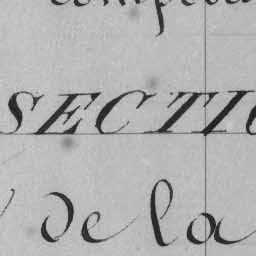 SECTIO
de la